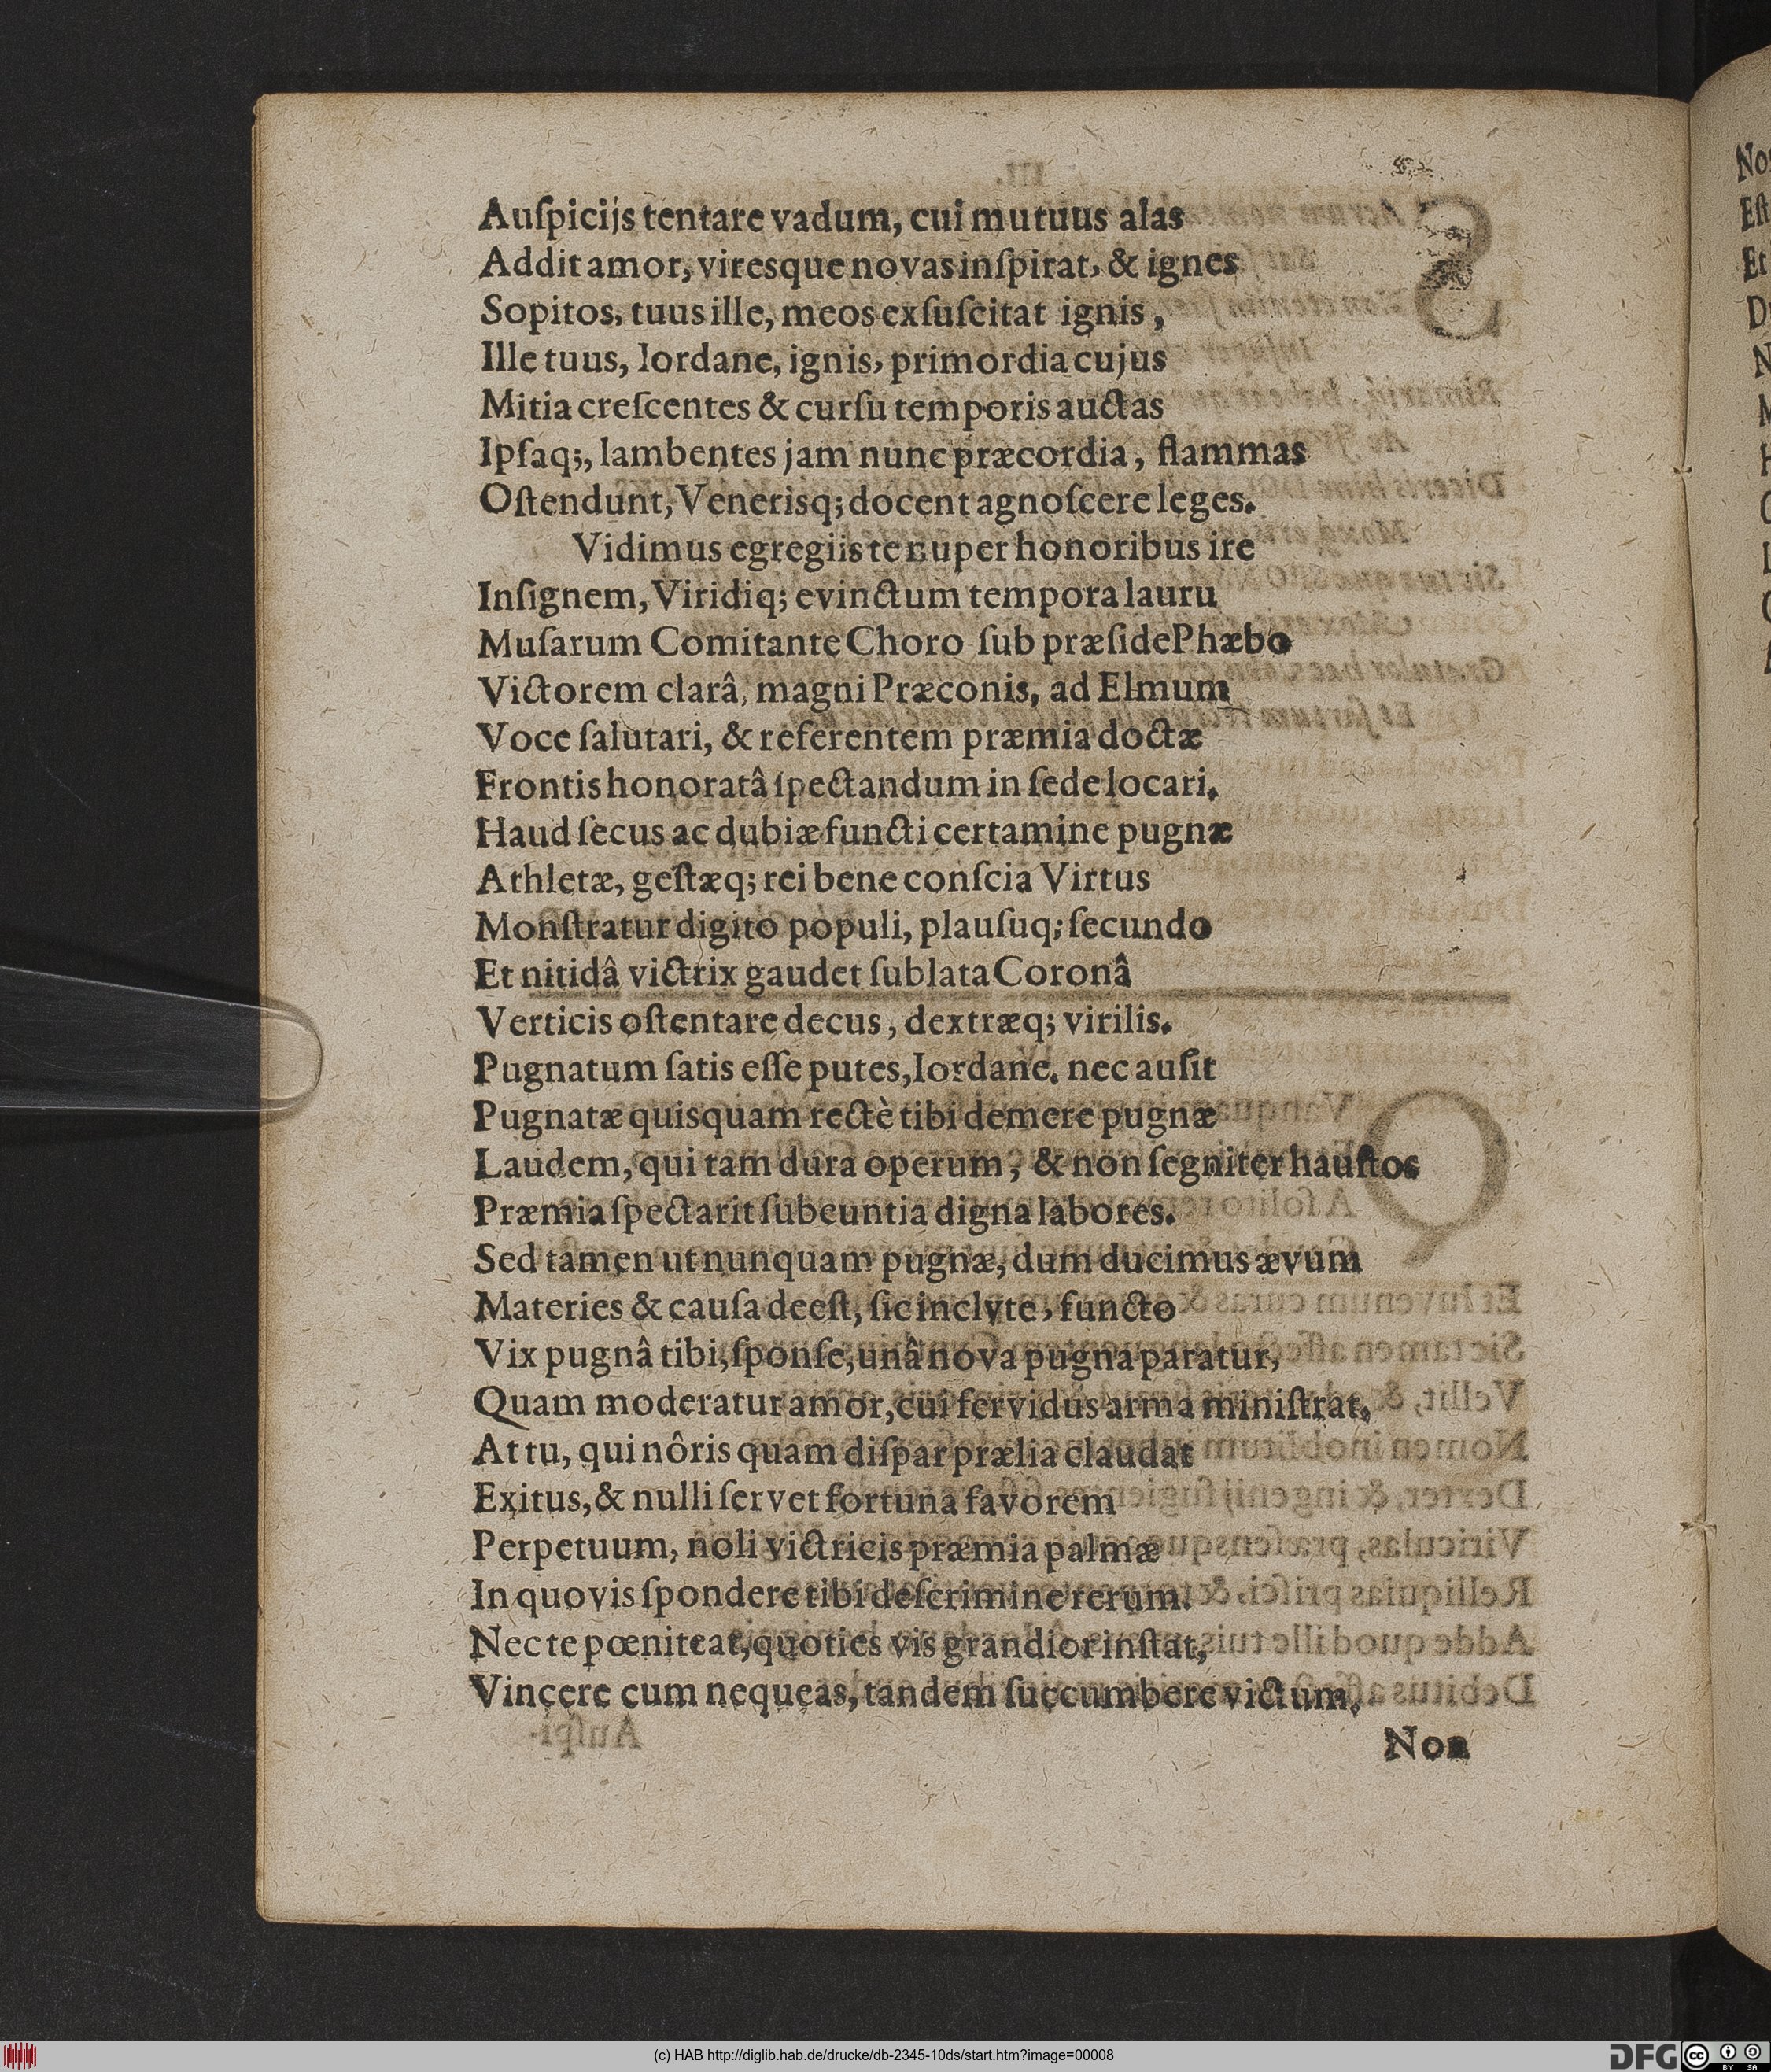 Auſpicijs tentare vadum, cui mutuus alas
Addit amor, viresque novas inſpirat, & ignes
Sopitos, tuus ille, meos exſuſcitat ignis,
Ille tuus, Iordane, ignis, primordia cujus
Mitia creſcentes & curſu temporis auctas
Ipſaq;, lambentes jam nunc præcordia, flammas
Oſtendunt, Venerisq; docent agnoſcere leges.
Vidimus egregiis te nuper honoribus ire
Inſignem, Viridiq; evinctum tempora lauru
Muſarum Comitante Choro ſub præſide Phæbo
Victorem clarâ, magni Præconis, ad Elmum
Voce ſalutari, & referentem præmia doctæ
Frontis honoratâ ſpectandum in ſede locari.
Haud ſecus ac dubiæ functi certamine pugnæ
Athletæ, geſtæq; rei bene conſcia Virtus
Monſtratur digito populi, plauſuq; ſecundo
Et nitidâ victrix gaudet ſublata Coronâ
Verticis oſtentare decus, dextræq; virilis.
Pugnatum ſatis eſſe putes, Iordane. nec auſit
Pugnatæ quisquam rectè tibi demere pugnæ
Laudem, qui tam dura operum, & non ſegniter hauſtos
Præmia ſpectarit ſubeuntia digna labores.
Sed tamen ut nunquam pugnæ, dum ducimus ævum
Materies & cauſa deeſt, ſic inclyte, functo
Vix pugnâ tibi, ſponſe, unâ nova pugna paratur,
Quam moderatur amor, cui fervidus arma miniſtrat.
At tu, qui nôris quam diſpar prælia claudat
Exitus, & nulli ſervet fortuna favorem
Perpetuum, noli victricis præmia palmæ
In quovis ſpondere tibi deſcrimine rerum.
Nec te pœniteat, quoties vis grandior inſtat,
Vincere cum nequeas, tandem ſuccumbere victum.
Non
(c) HAB http://diglib.hab.de/drucke/db-2345-10ds/start.htm?image=00008
DFG
cc
BY SA